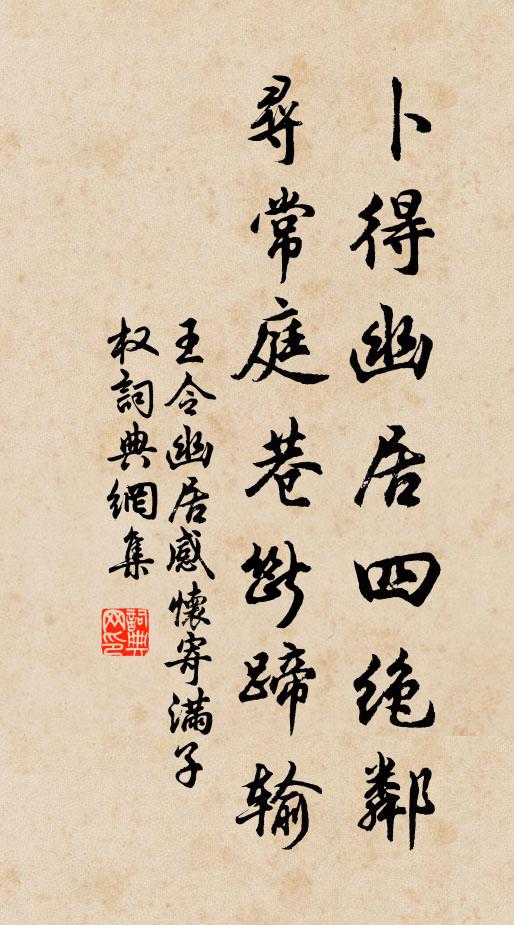 卜得幽居四绝鄰
尋常庭巷斷蹄输
王令幽居感懷寄滿子
权詞典網集
詞典网印